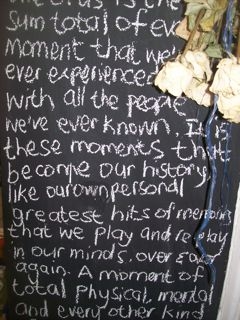 of us is the
sum total of ev
moment that we'
ever experienced
with all the people
we've ever known. It is
these moments that
become our history
like our own personal
greatest hits of memories
that we play and replay
in our minds, over & over
again. A moment of
total physical, mental
and every other kind